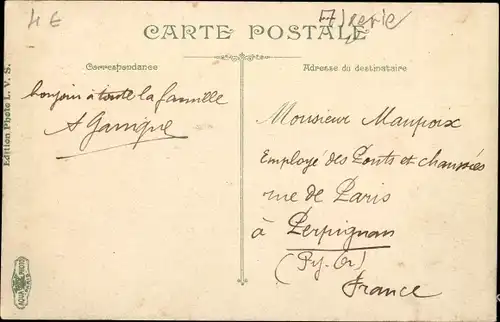 4€
Algerie
CARTE POSTALE
Correspondance
Adresse du destinataire
bonjour à toute la famille
A Garrigue
Monsieur Maupoix
Employé des Ponts et chaussées
rue de Paris
à Perpignan
(Py. Or)
France
Edition Photo L. V. S.